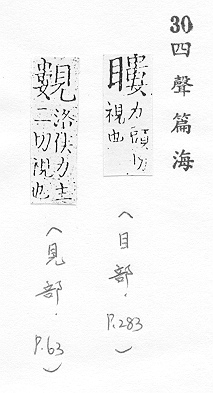 30 四聲篇海
瞜 力頭切
視也
(目部.P.283)
洛侯力主
二切視也
(見部.P.63)